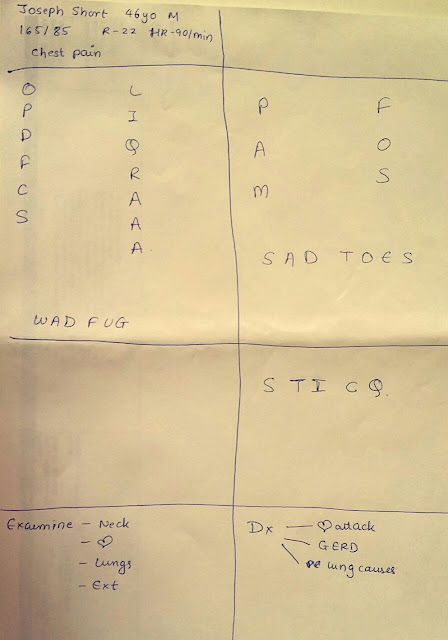 Joseph Short 46yo M
165/85 R-22 HR-90/min
Chest pain
O
P
D
F
C
S
L
I
Q
R
A
A
A
WAD FUG
P
A
M
F
O
S
SAD TOES
STICQ
Examine - Neck
- ♡
- Lungs
- Ext
Dx — ♡ attack
GERD
lung causes